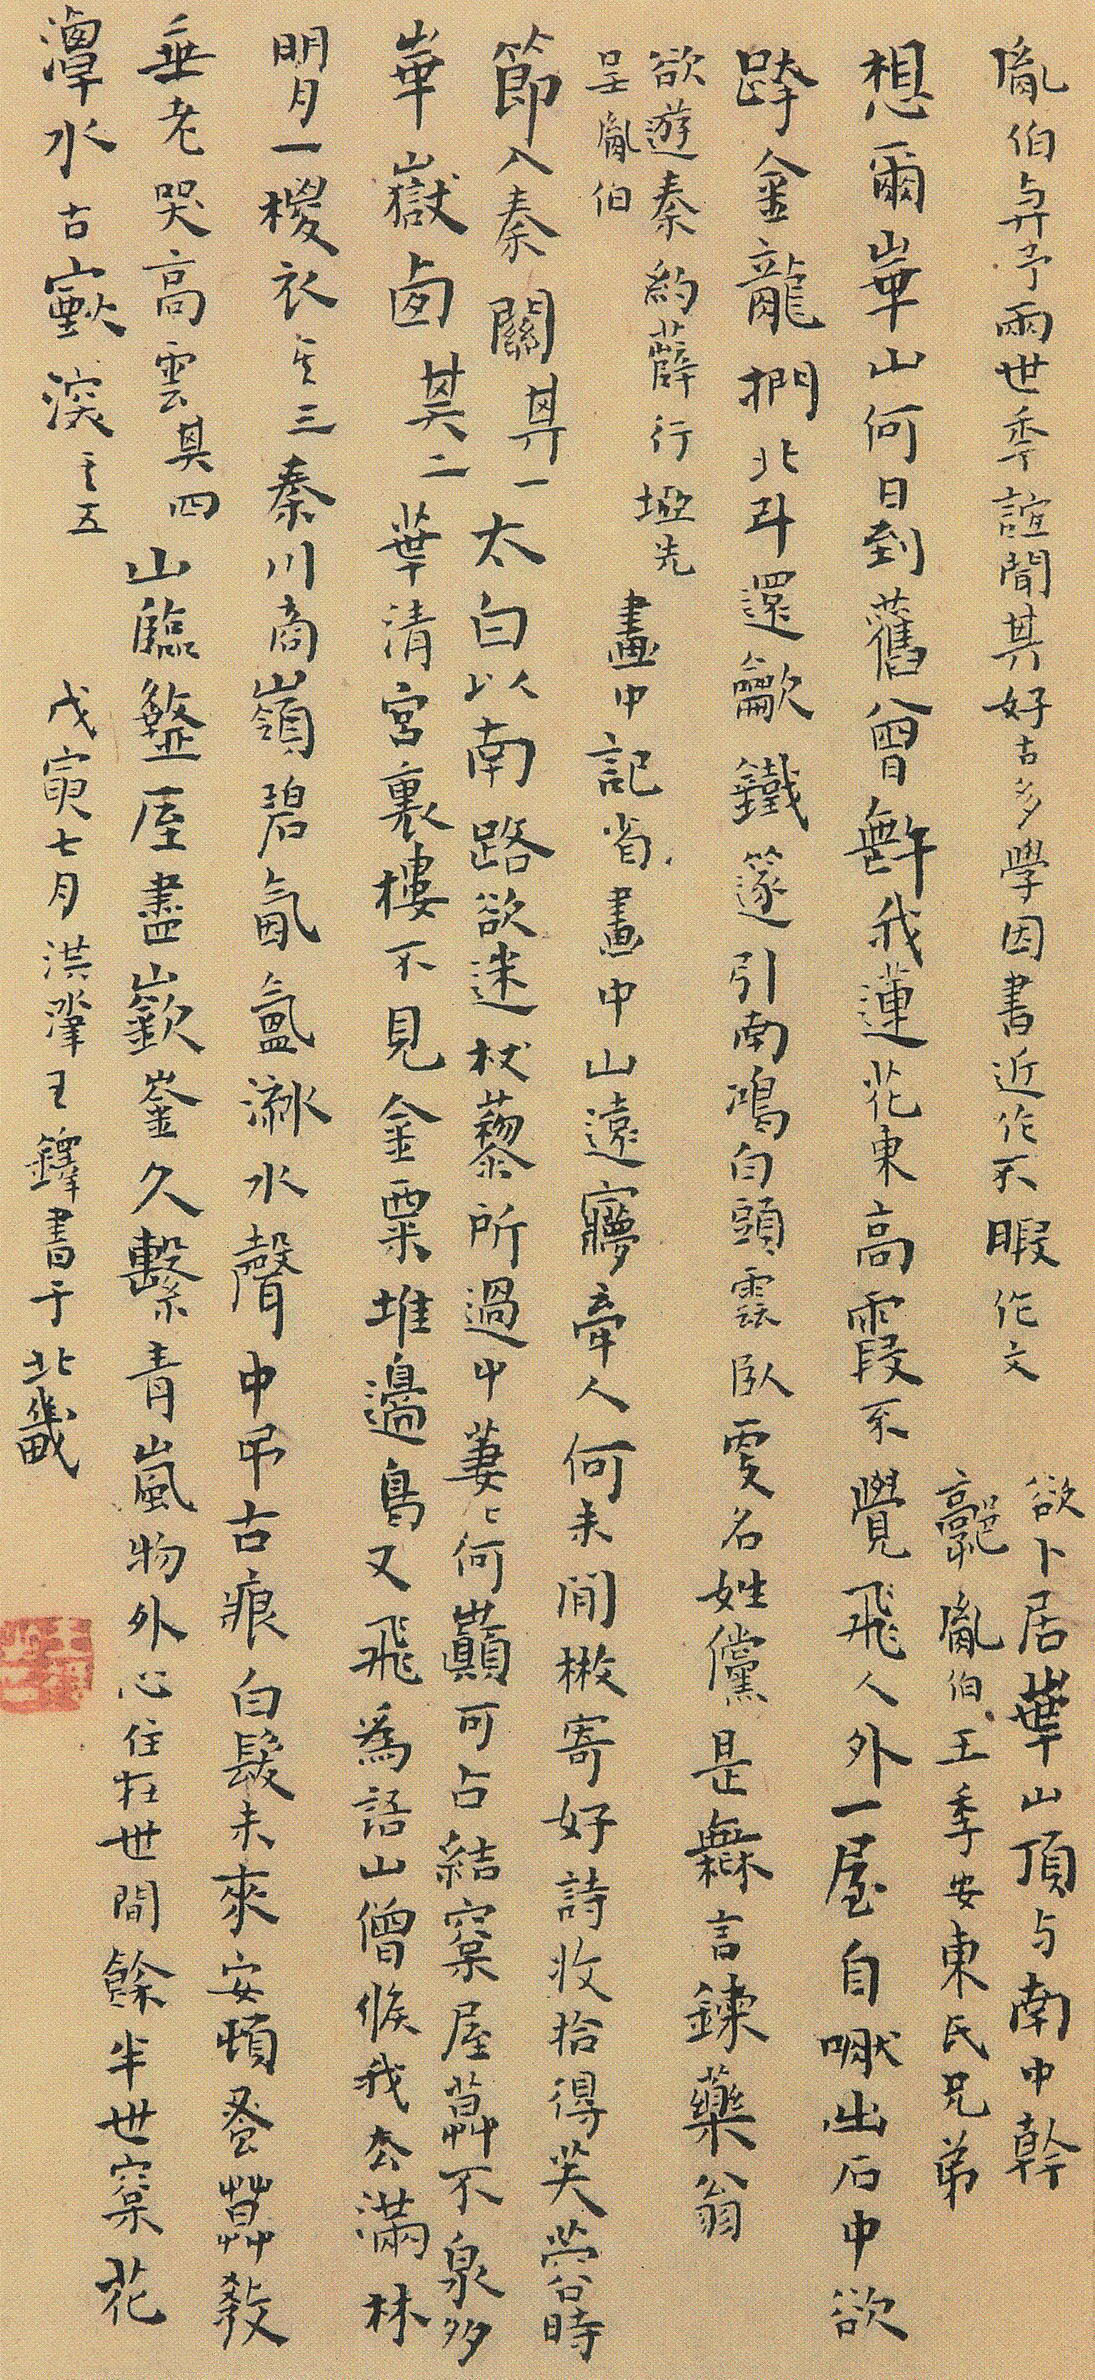 胤伯与予兩世年誼聞其好古多學因書近作不暇作文
欲卜居華山頂与南中幹
鄗胤伯王季安東氏兄弟
想爾崋山何日到舊曾無許我蓮花東高霞不覺飛人外一屋自嘯出石中欲
跨金龍捫北斗還龡鐵篴引南鴻白頭雲臥更名姓儻是無言鍊藥翁
欲遊秦約薛行塢先
呈胤伯
畫中記省畫中山遠夢牽人何未閒橄寄好詩收拾得芙蓉時
節入秦關其一太白以南路欲迷杖藜所過中萋〻何巔可占結窠屋藠不泉多
崋嶽鹵其二華清宮裏樓不見金粟堆邊鳥又飛為語山僧候我去滿林
明月一椶衣其三秦川商嶺碧氤氳潏水聲中弔古痕白髮未來安頓蚤藠教
垂老哭高雲其四山臨盩厔盡嶔崟久繫青嵐物外心住在世間餘半世窠花
潭水古窽深其五
戊寅七月洪濛王鐸書于北畿
王鐸